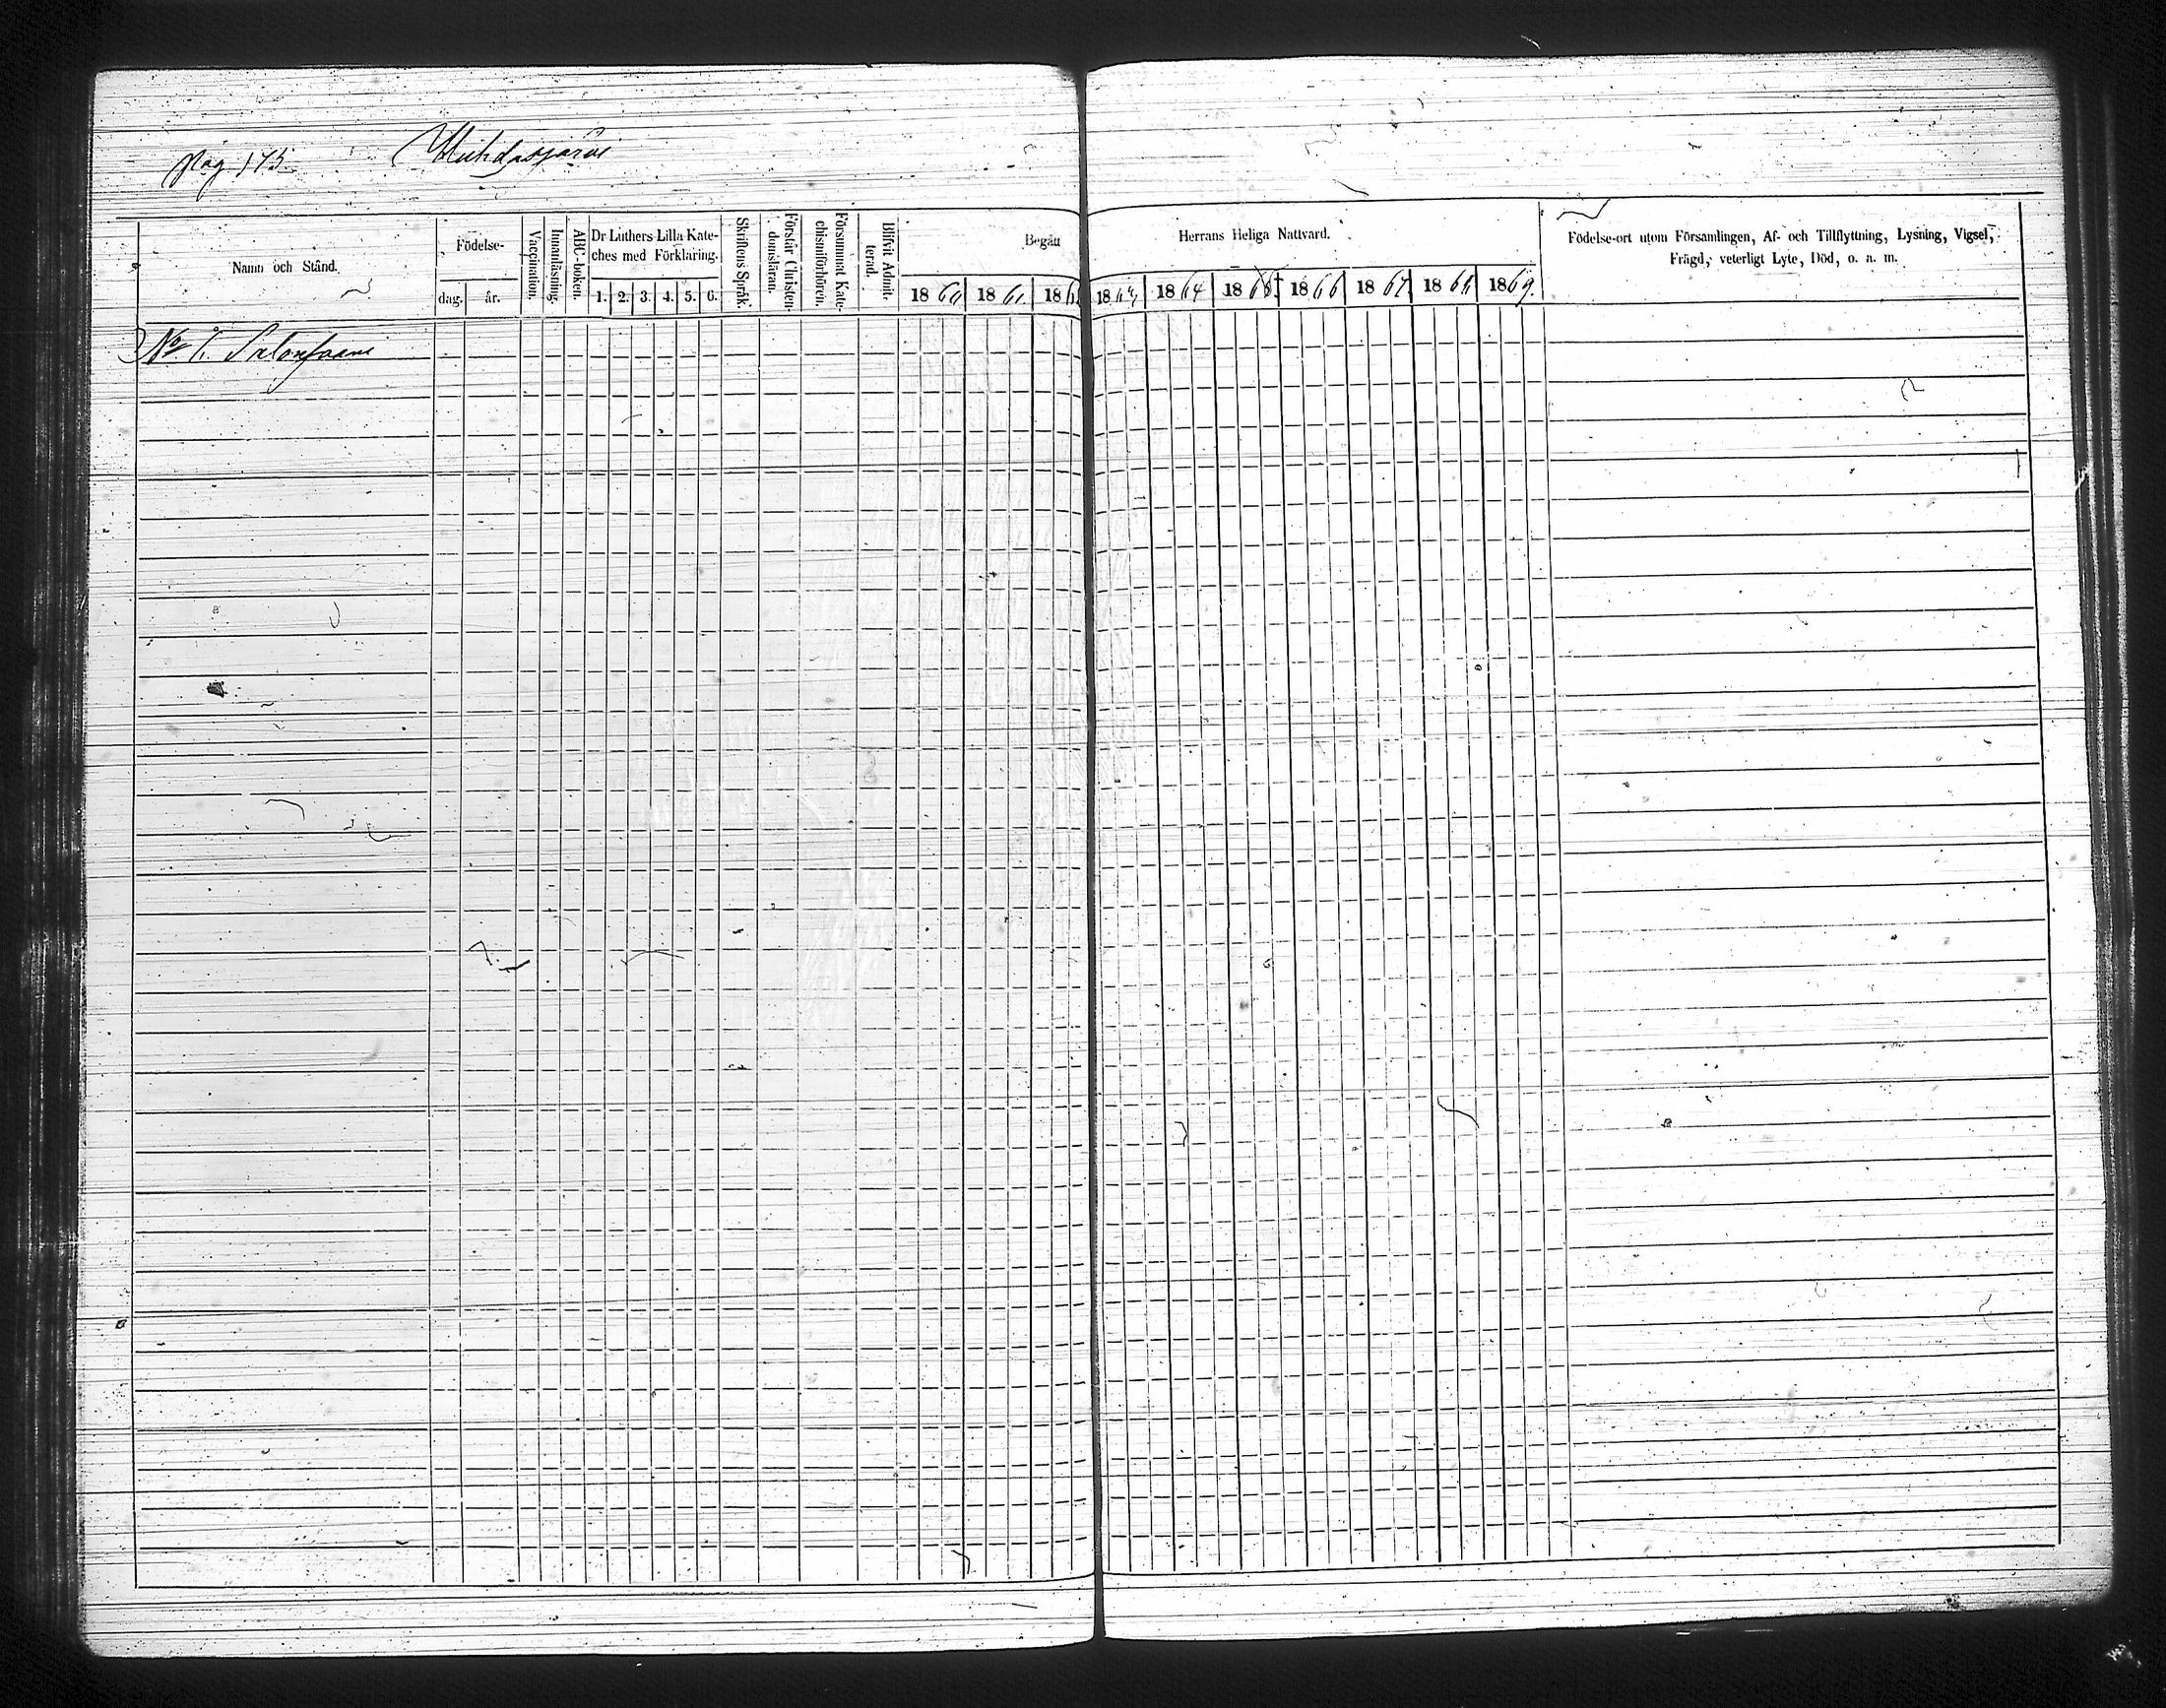 Pag 175
Namn och Stånd.
Födelse-
dag. år.
Vaccination.
Innanläsning.
ABC-boken.
Dr Luthers Lilla Kate-
ches med Förklaring.
1. 2. 3. 4. 5. 6.
Skriftens Språk.
Förstår Christen-
domsläran.
Försummat Kate-
chismiförhören.
Blifvit Admit-
terad.
Begått Herrans Heliga Nattvard.
1860 1861 1862 1863 1864 1865 1866 1867 1868 1869.
Födelse-ort utom Församlingen, Af- och Tillflyttning, Lysning, Vigsel,
Frägd, veterligt Lyte, Död, o. a. m.
No